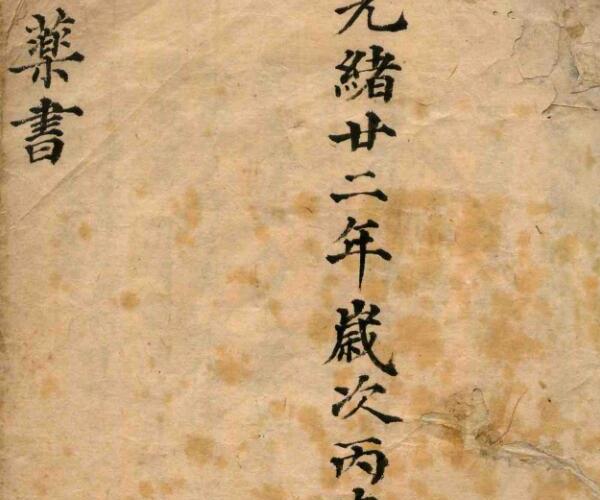 光緒廿二年歲次丙
藥書